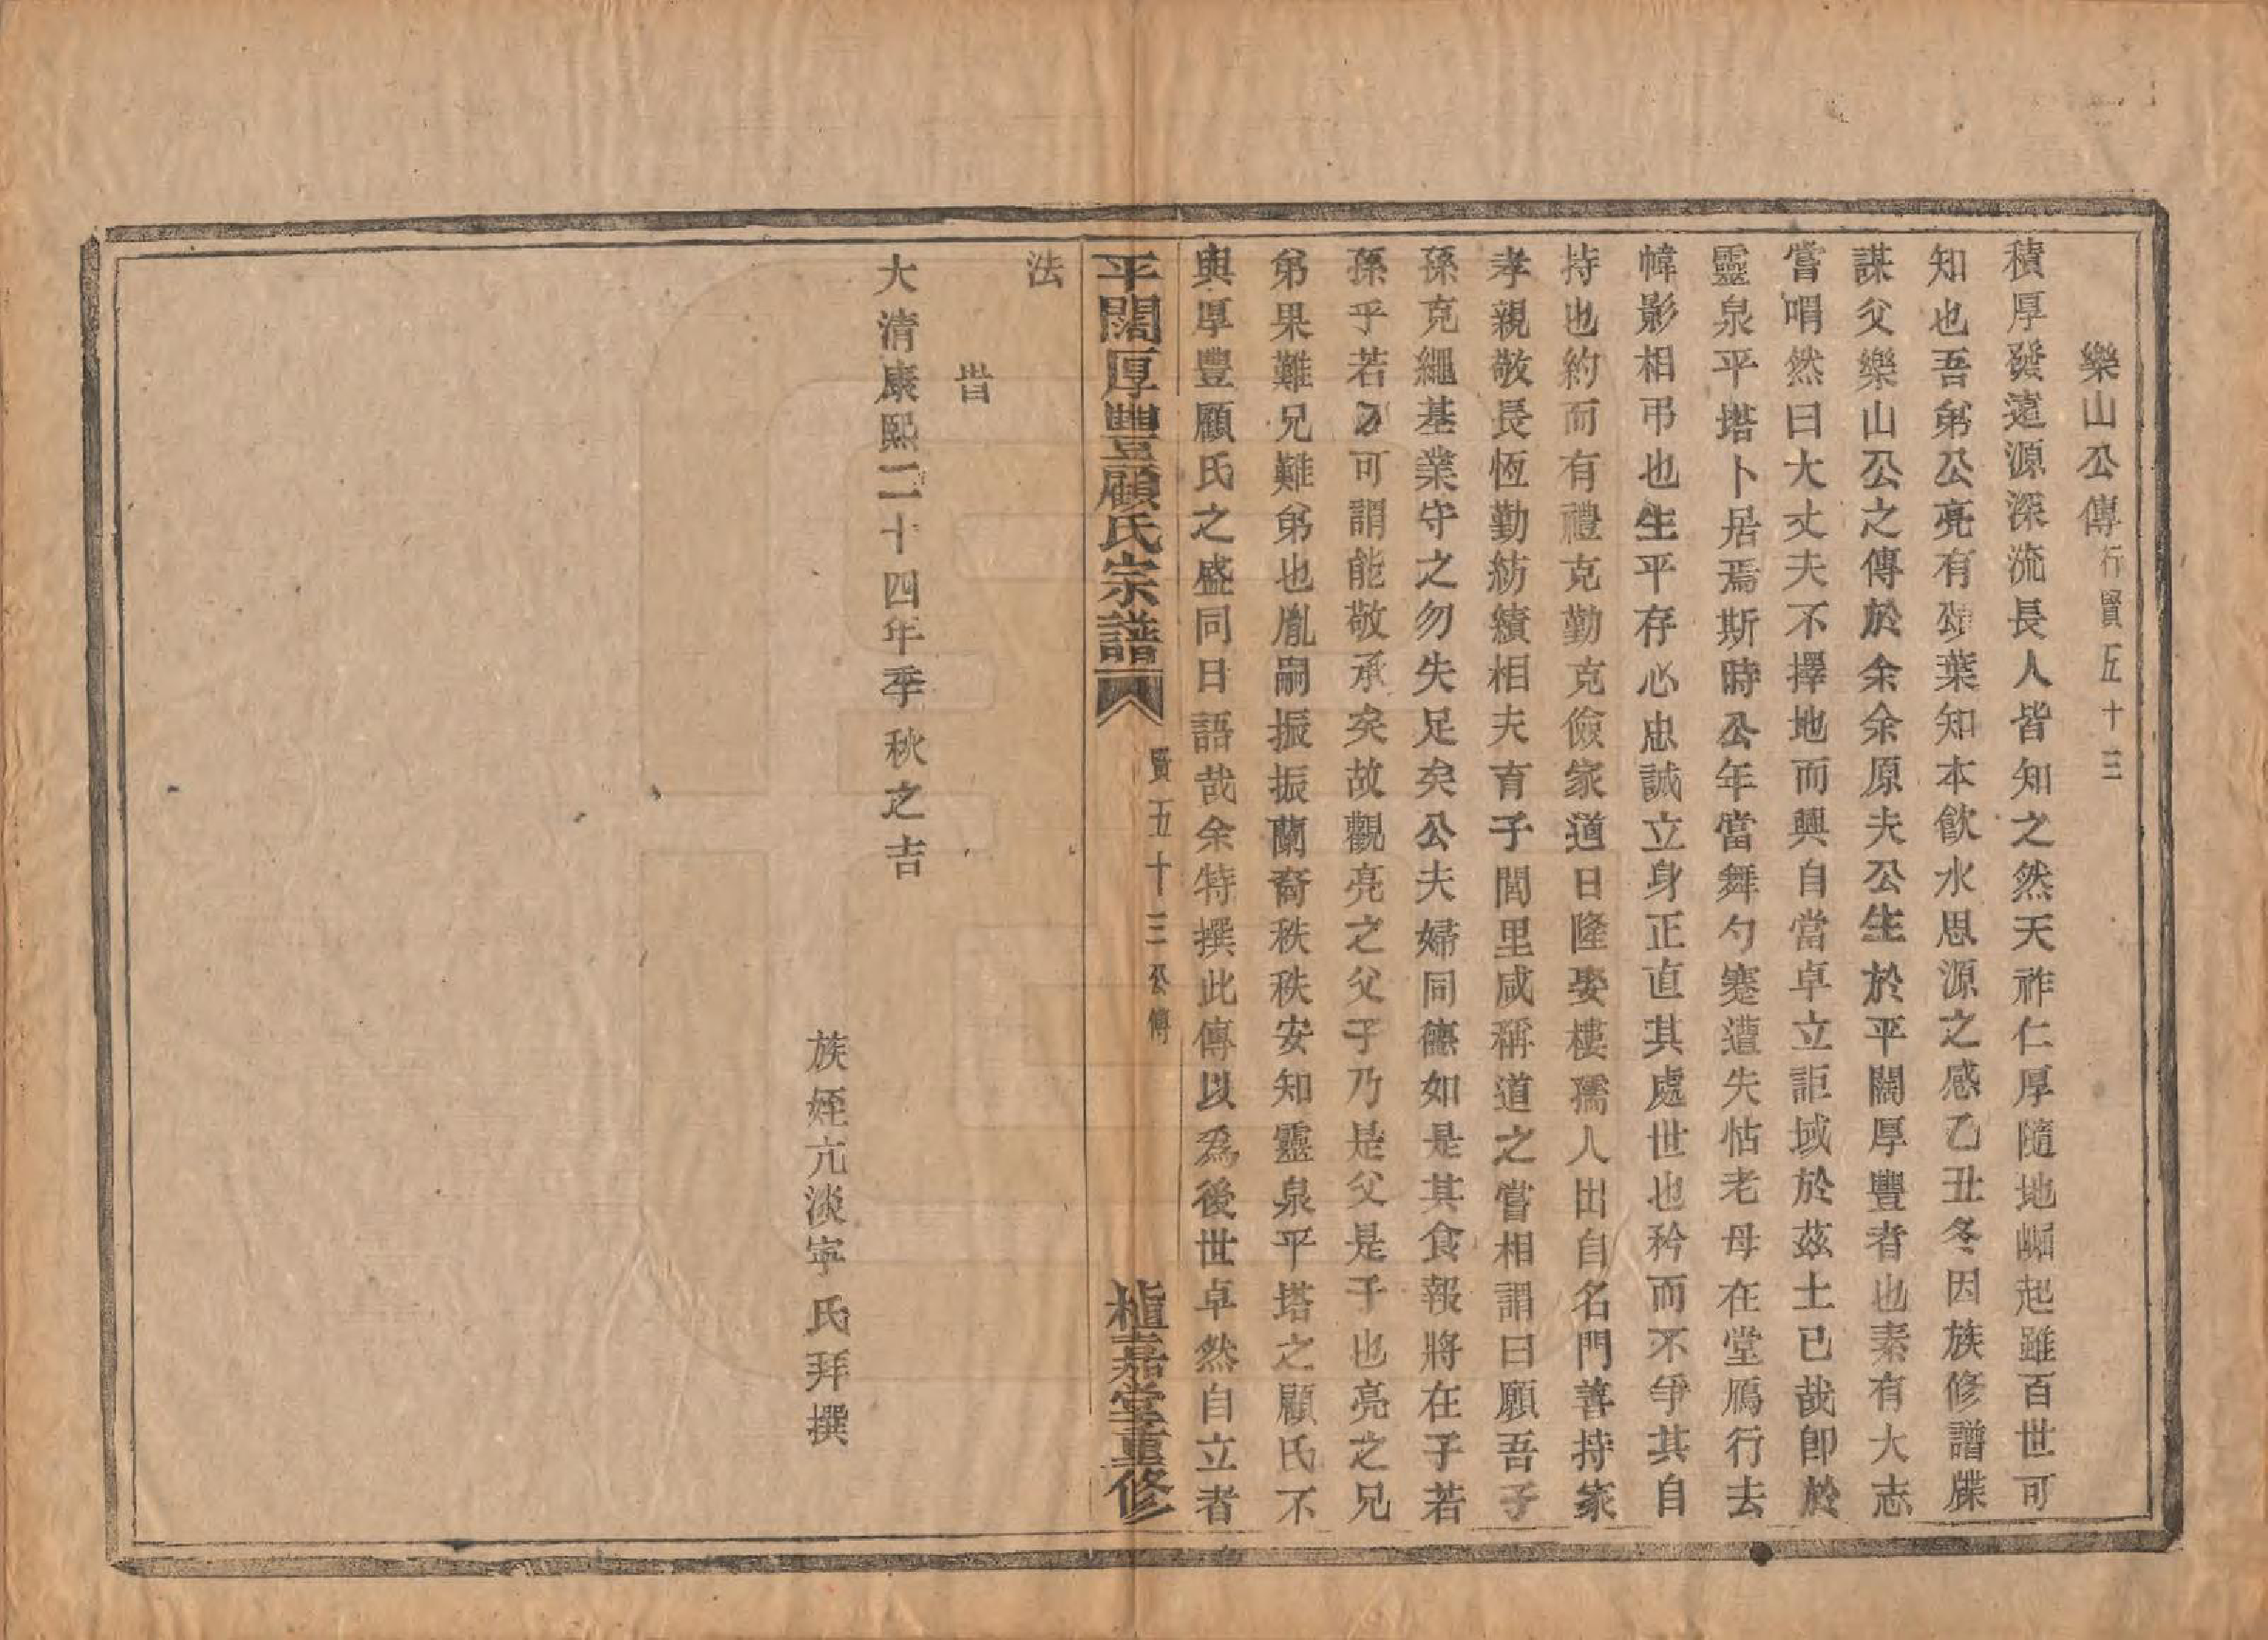 樂山公傳行賢五十三
積厚發遠源深流長人皆知之然天祚仁厚隨地崛起雖百世可
知也吾弟公亮有弈葉知本飲水思源之感乙丑冬因族修譜牒
謀父樂山公之傳於余余原夫公生於平闊厚豐者也素有大志
嘗喟然曰大丈夫不擇地而興自當卓立詎域於茲土已哉卽於
靈泉平塔卜居焉斯時公年當舞勺蹇遭失怙老母在堂鴈行去
幃影相弔也生平存心忠誠立身正直其處世也矜而不爭其自
持也約而有禮克勤克儉家道日隆娶樓孺人出自名門善持家
孝親敬長恆勤紡績相夫育子閭里咸稱道之嘗相謂曰願吾子
孫克繩基業守之勿失足矣公夫婦同德如是其食報將在子若
孫乎若乃可謂能敬承矣故觀亮之父子乃是父是子也亮之兄
弟果難兄難弟也胤嗣振振蘭裔秩秩安知靈泉平塔之顧氏不
與厚豐顧氏之盛同日語哉余特撰此傳以為後世卓然自立者
平闊厚豐顧氏宗譜
賢五十三公傳
植嘉堂重修
法
旹
大清康熙二十四年季秋之吉
族姪亢淡寧氏拜撰